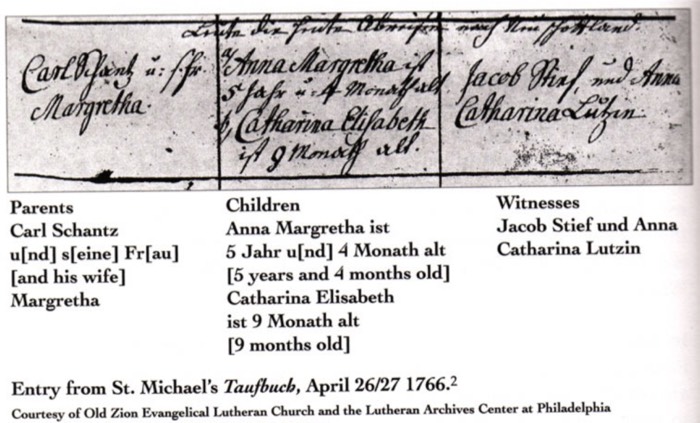 Leute die heute Abreisen nach Neu schottland.
Carl Schantz u: s. fr.
Margretha.
a, Anna Margretha ist
5 Jahr u: 4 Monath alt
b, Catharina Elisabeth
ist 9 Monath alt.
Jacob Stief, und Anna
Catharina Lutzin
Parents
Carl Schantz
u[nd] s[eine] Fr[au]
[and his wife]
Margretha
Children
Anna Margretha ist
5 Jahr u[nd] 4 Monath alt
[5 years and 4 months old]
Catharina Elisabeth
ist 9 Monath alt
[9 months old]
Witnesses
Jacob Stief und Anna
Catharina Lutzin
Entry from St. Michael's Taufbuch, April 26/27 1766.²
Courtesy of Old Zion Evangelical Lutheran Church and the Lutheran Archives Center at Philadelphia